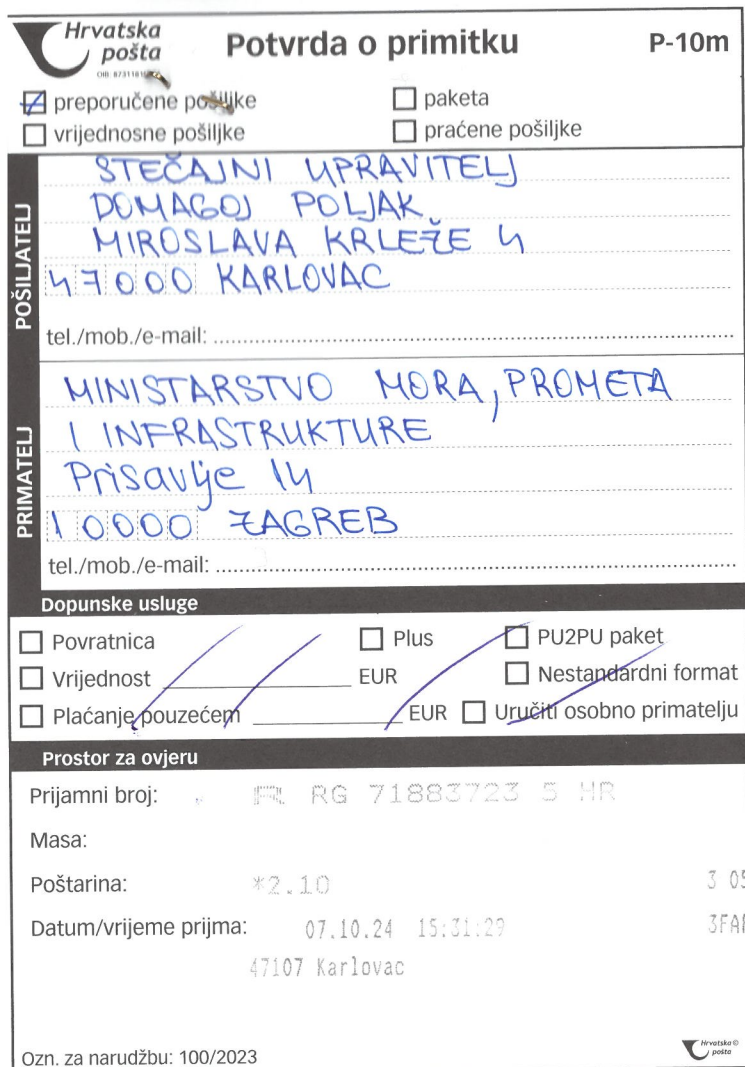 Hrvatska
pošta
Potvrda o primitku
P-10m
preporučene pošiljke
paketa
vrijednosne pošiljke
praćene pošiljke
POŠILJATELJ
STEČAJNI UPRAVITELJ
DOMAGOJ POLJAK
MIROSLAVA KRLEŽE 4
47000 KARLOVAC
tel./mob./e-mail:
PRIMATELJ
MINISTARSTVO MORA, PROMETA
I INFRASTRUKTURE
Prisavlje 14
10000 ZAGREB
tel./mob./e-mail:
Dopunske usluge
Povratnica
Plus
PU2PU paket
Vrijednost EUR
Nestandardni format
Plaćanje pouzećem EUR
Uručiti osobno primatelju
Prostor za ovjeru
Prijamni broj: R RG 71883723 5 HR
Masa:
Poštarina: *2.10 3 05
Datum/vrijeme prijma: 07.10.24 15:31:29
47107 Karlovac
Ozn. za narudžbu: 100/2023
Hrvatska
pošta